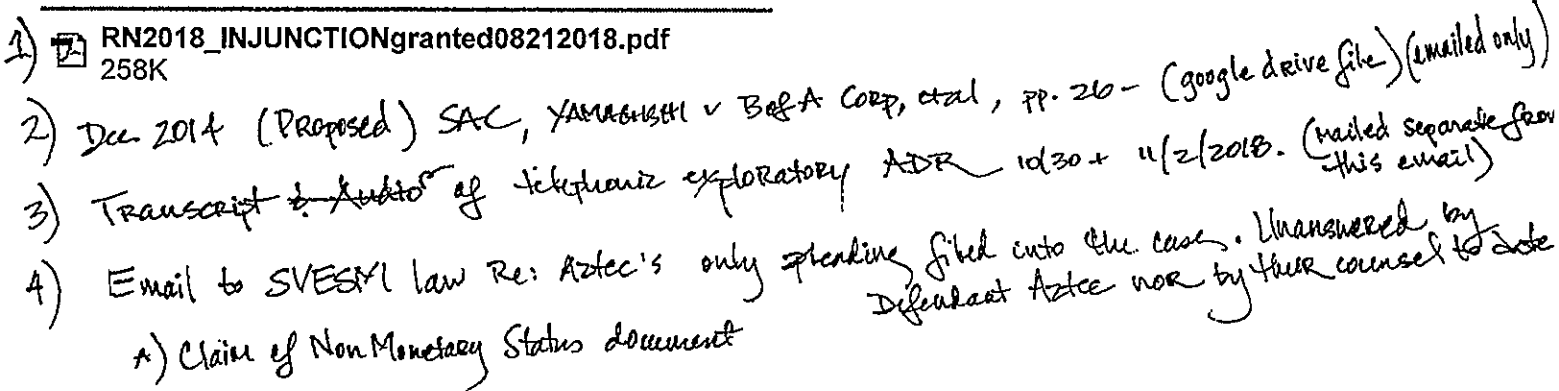 1) RN2018_INJUNCTIONgranted08212018.pdf
258K
2) Dec 2014 (Proposed) SAC, YAMAGUSHI v BofA Corp, etal, pp. 26- (google drive file) (emailed only)
3) Transcript & Audio of telephonic exploratory ADR 10/30 + 11/2/2018. (mailed separate from
this email)
4) Email to law Re: Aztec's only pleading filed into the case. Unanswered by
Defendant Aztec nor by their counsel to date
A) Claim of Non Monetary Status document